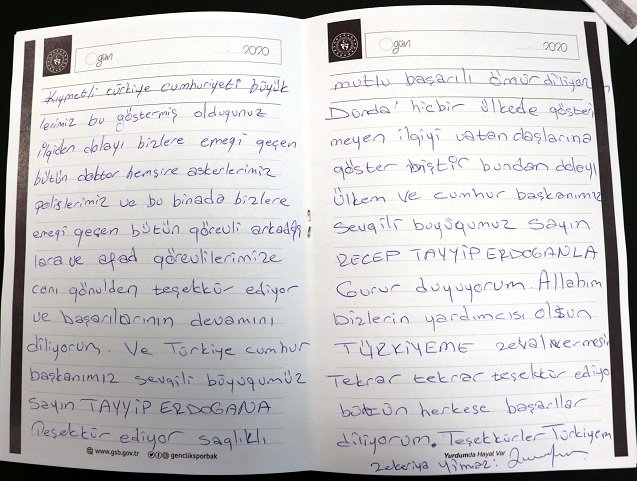 gün
2020
Kıymetli türkiye cumhuriyeti büyük
lerimiz bu göstermiş olduğunuz
ilgiden dolayı bizlere emeği geçen
bütün doktor hemşire askerlerimiz
polislerimiz ve bu binada bizlere
emeği geçen bütün görevli arkadaş
lara ve afad görevlilerimize
canı gönülden teşekkür ediyor
ve başarılarının devamını
diliyorum. Ve Türkiye cumhur
başkanımız sevgili büyüğümüz
Sayın TAYYİP ERDOGANA
Teşekkür ediyor sağlıklı
www.gsb.gov.tr gencliksporbak
gün
2020
mutlu başarılı ömür diliyorum
Dunda' hicbir ülkede gösteri
meyen ilgiyi vatandaşlarına
göstermiştir bundan dolayı
ülkem ve cumhur başkanımız
Sevgili büyüğümüz Sayın
RECEP TAYYİP ERDOGANLA
Gurur duyuyorum. Allahım
bizlerin yardımcısı olsun
TÜRKİYEME zeval vermesin
Tekrar tekrar teşekkür ediyo
bütün herkese başarılar
diliyorum. Teşekkürler Türkiyem
Yurdumda Hayat Var
Zekeriya Yilmaz: